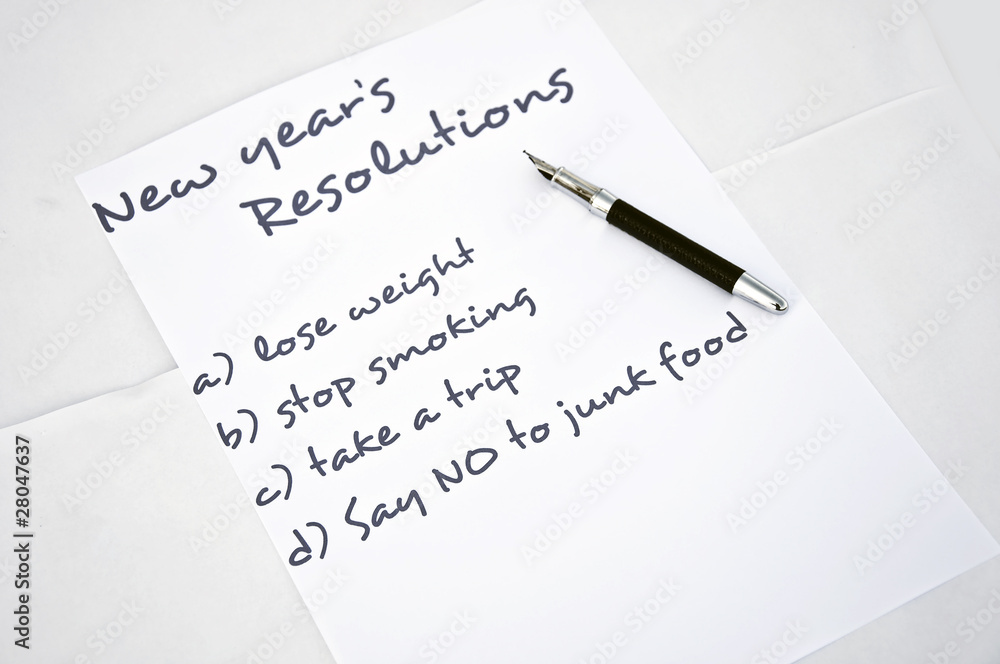 New year's
Resolutions
a) lose weight
b) stop smoking
c) take a trip
d) Say NO to junk food
Adobe Stock | #28047637